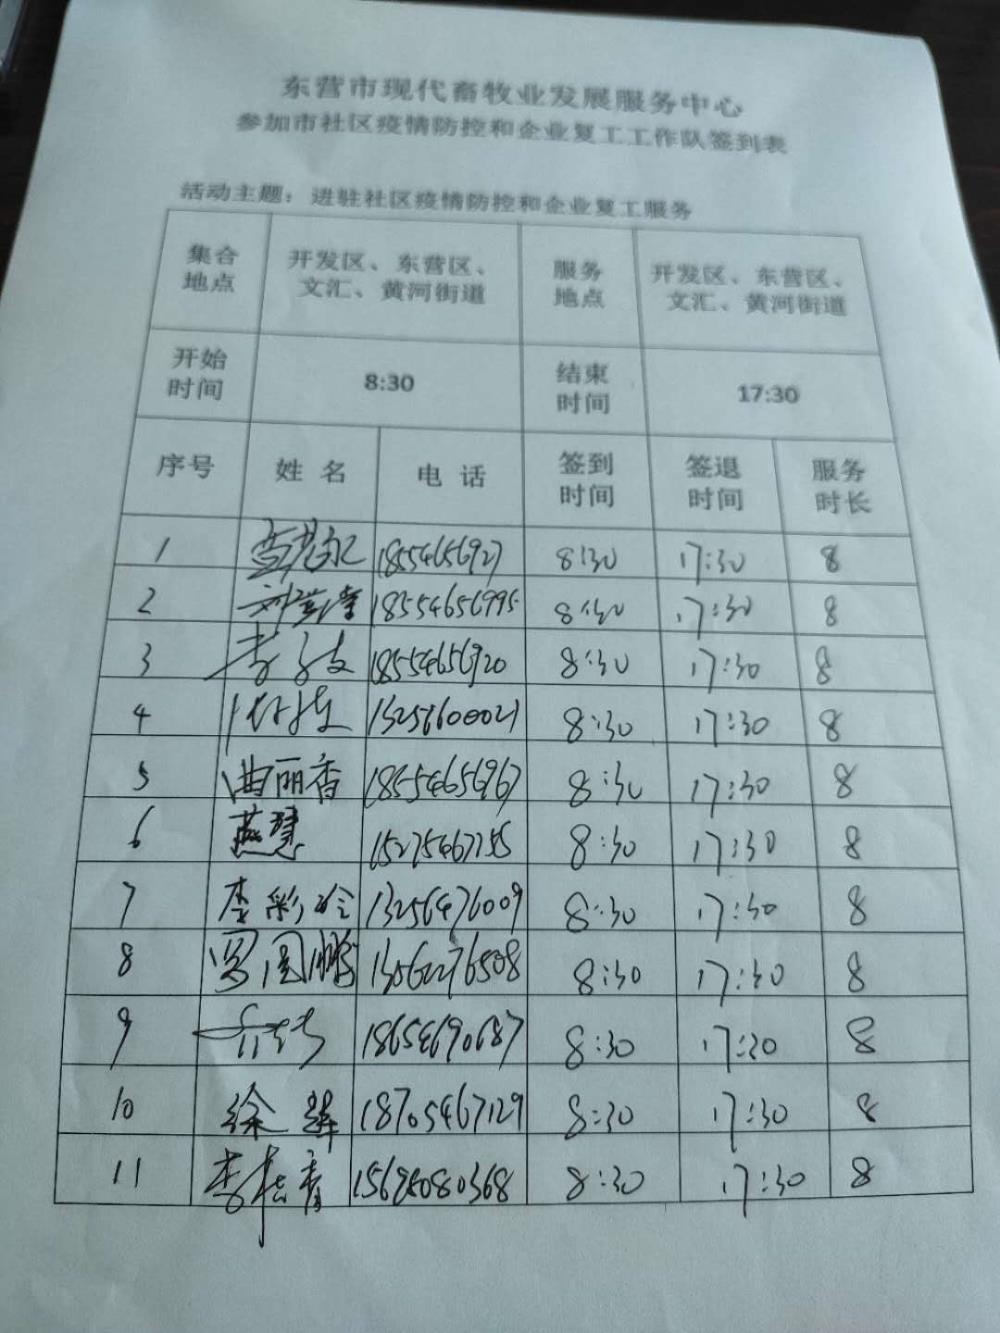 东营市现代畜牧业发展服务中心
参加市社区疫情防控和企业复工工作队签到表
活动主题：进驻社区疫情防控和企业复工服务
集合地点 开发区、东营区、文汇、黄河街道 服务地点 开发区、东营区、文汇、黄河街道
开始时间 8:30 结束时间 17:30
序号 姓名 电话 签到时间 签退时间 服务时长
1 18554656927 8:30 17:30 8
2 18554656995 8:30 17:30 8
3 18554656920 8:30 17:30 8
4 8:30 17:30 8
5 曲丽香 18554656967 8:30 17:30 8
6 燕慧 15275467155 8:30 17:30 8
7 李彩玲 13256476009 8:30 17:30 8
8 罗国鹏 13062276508 8:30 17:30 8
9 18654690687 8:30 17:30 8
10 徐 18705467129 8:30 17:30 8
11 李 8:30 17:30 8